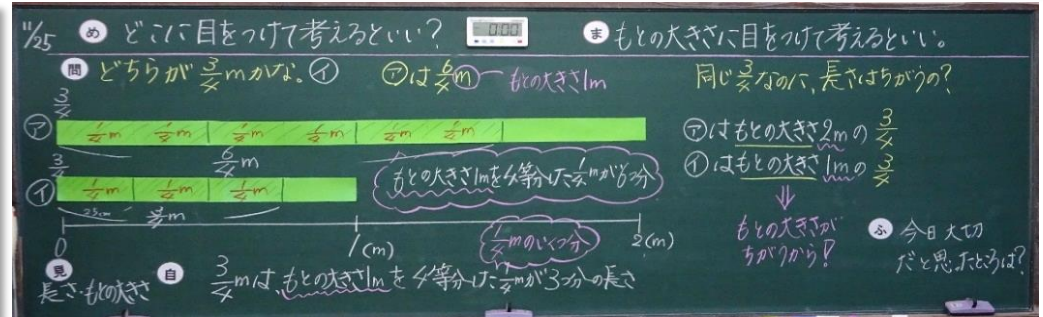 11/25
め どこに目をつけて考えるといい?
0:00
ま もとの大きさに目をつけて考えるといい。
問 どちらが3/4mかな。イ
アは6/4m
もとの大きさ1m
同じ3/4なのに、長さはちがうの?
3/4
ア 1/4m 1/4m 1/4m 1/4m 1/4m 1/4m
6/4m
3/4
イ 1/4m 1/4m 1/4m
25cm 3/4m
もとの大きさ1mを4等分した1/4mが6つ分
0 1(m) 2(m)
1/4mのいくつ分
アはもとの大きさ2mの3/4
イはもとの大きさ1mの3/4
⇓
もとの大きさが
ちがうから!
見
長さ・もとの大きさ
自 3/4mは、もとの大きさ1mを4等分した1/4mが3つ分の長さ
ふ 今日大切
だと思ったところは?